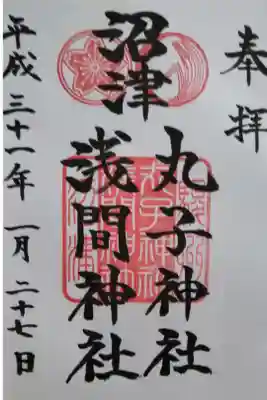 奉拝
沼津
丸子神社
浅間神社
平成三十一年一月二十七日